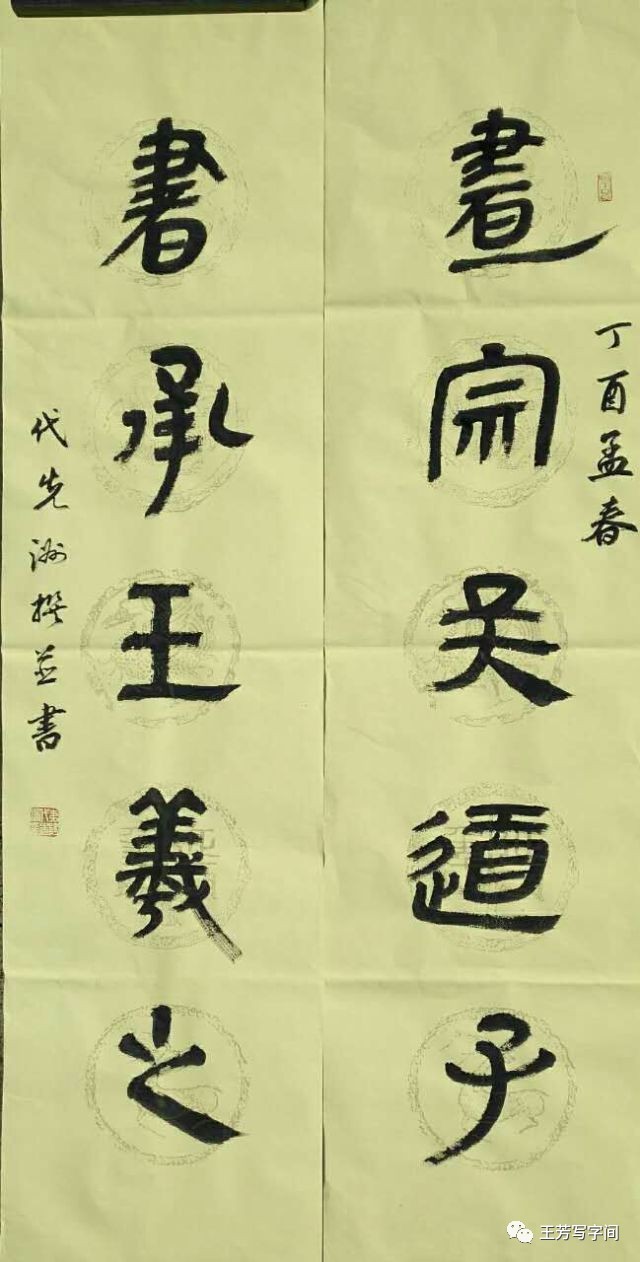 丁酉孟春
畫宗吴道子
書承王羲之
代先洲撰並書
王芳写字间